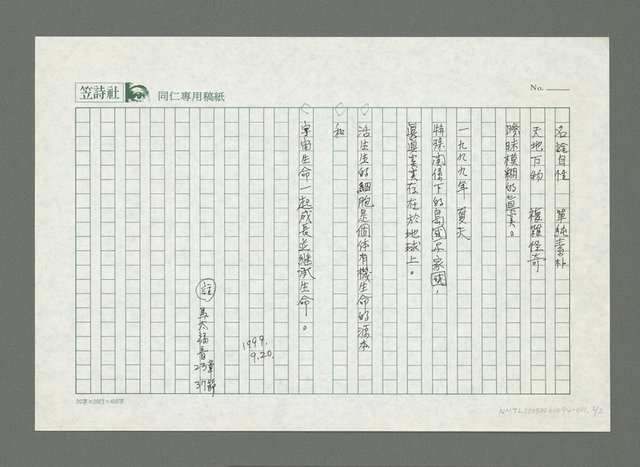 笠詩社
同仁專用稿紙
No.
名詮自性 單純素朴
天地万物 複雜怪奇
曖昧模糊的真美。
一九九九年 夏天
特殊關係下的島國子家國，
真真實實存在於地球上。
活生生的細胞是個体有機生命的源本
和
宇宙生命一起成長並繼承生命。
1999.
9.20.
註 馬太福音
23章
37節
20字×20行=400字